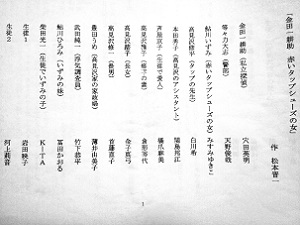 「金田一耕助 赤いタップシューズの女」
作 松本晋一
金田一耕助(私立探偵) 穴田英明
等々力大志(警部) 天野俊哉
鮎川いずみ(赤いタップシューズの女) みすみゆきこ
高見沢修平(タップの先生) 白川希
本田秀子(高見沢のアシスタント)
芦原辰子(生徒で愛人)
高見沢雅子(修平の妻)
高見沢綾子(長女) 金子真弓
高見沢修一(長男) 首藤憲子
豊田うめ(高見沢家の家政婦) 薄井由美子
武田純一(浮気調査員) 竹下恭平
鮎川ひろみ(いずみの妹) 冨田かおる
柴田丈一(生徒でいずみの子) KITA
生徒1 岩田映子
生徒2 河上莉音
1